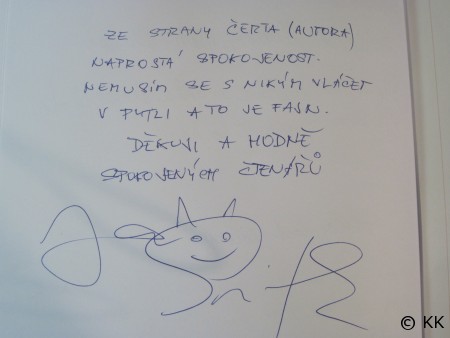 ZE STRANY ČERTA (AUTORA)
NAPROSTÁ SPOKOJENOST.
NEMUSÍM SE S NIKÝM VLÁČET
V PYTLI A TO JE FAJN.
DĚKUJI A HODNĚ
SPOKOJENÝCH ČTENÁŘŮ
© KK